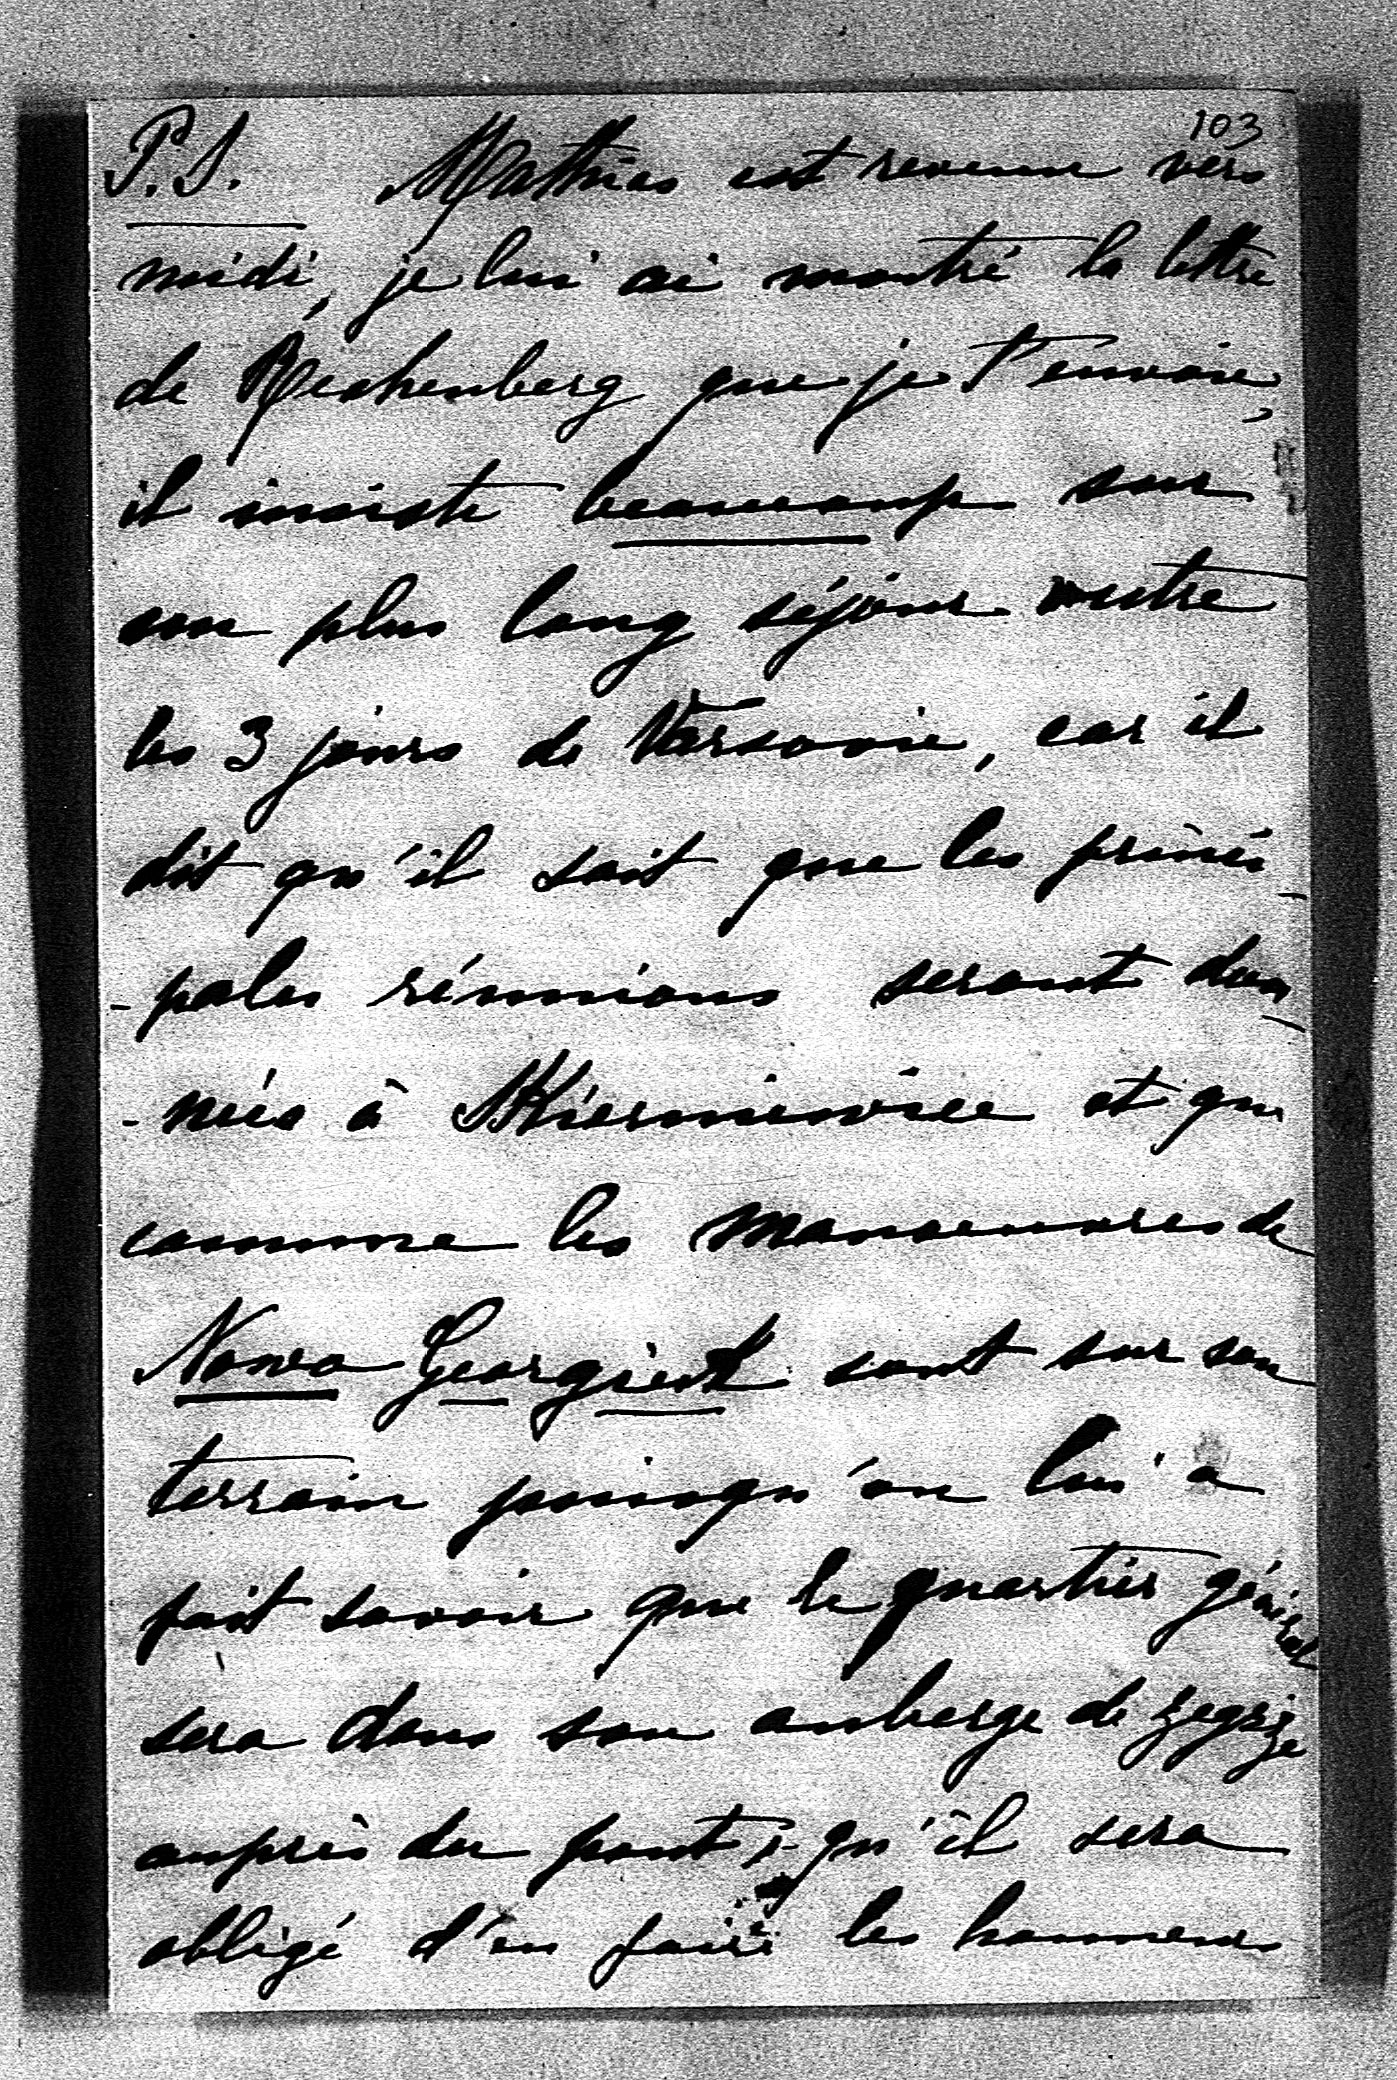 103
P.S. Mathias est revenu vers
midi, je lui ai montré la lettre
de Rechenberg que je t'envoie,
il insiste beaucoup sur
son plus long séjour outre
les 3 jours de Varsovie, car il
dit qu'il sait que les princi-
-pales réunions seront don-
-nées à Skierniewice et que
comme les manoeuvres de
Nowo Georgiewsk sont sur son
terrain puisqu'on lui a
fait savoir que le quartier général
sera dans son auberge de Zegrze
auprès du pont, qu'il sera
obligé d'en faire les honneurs